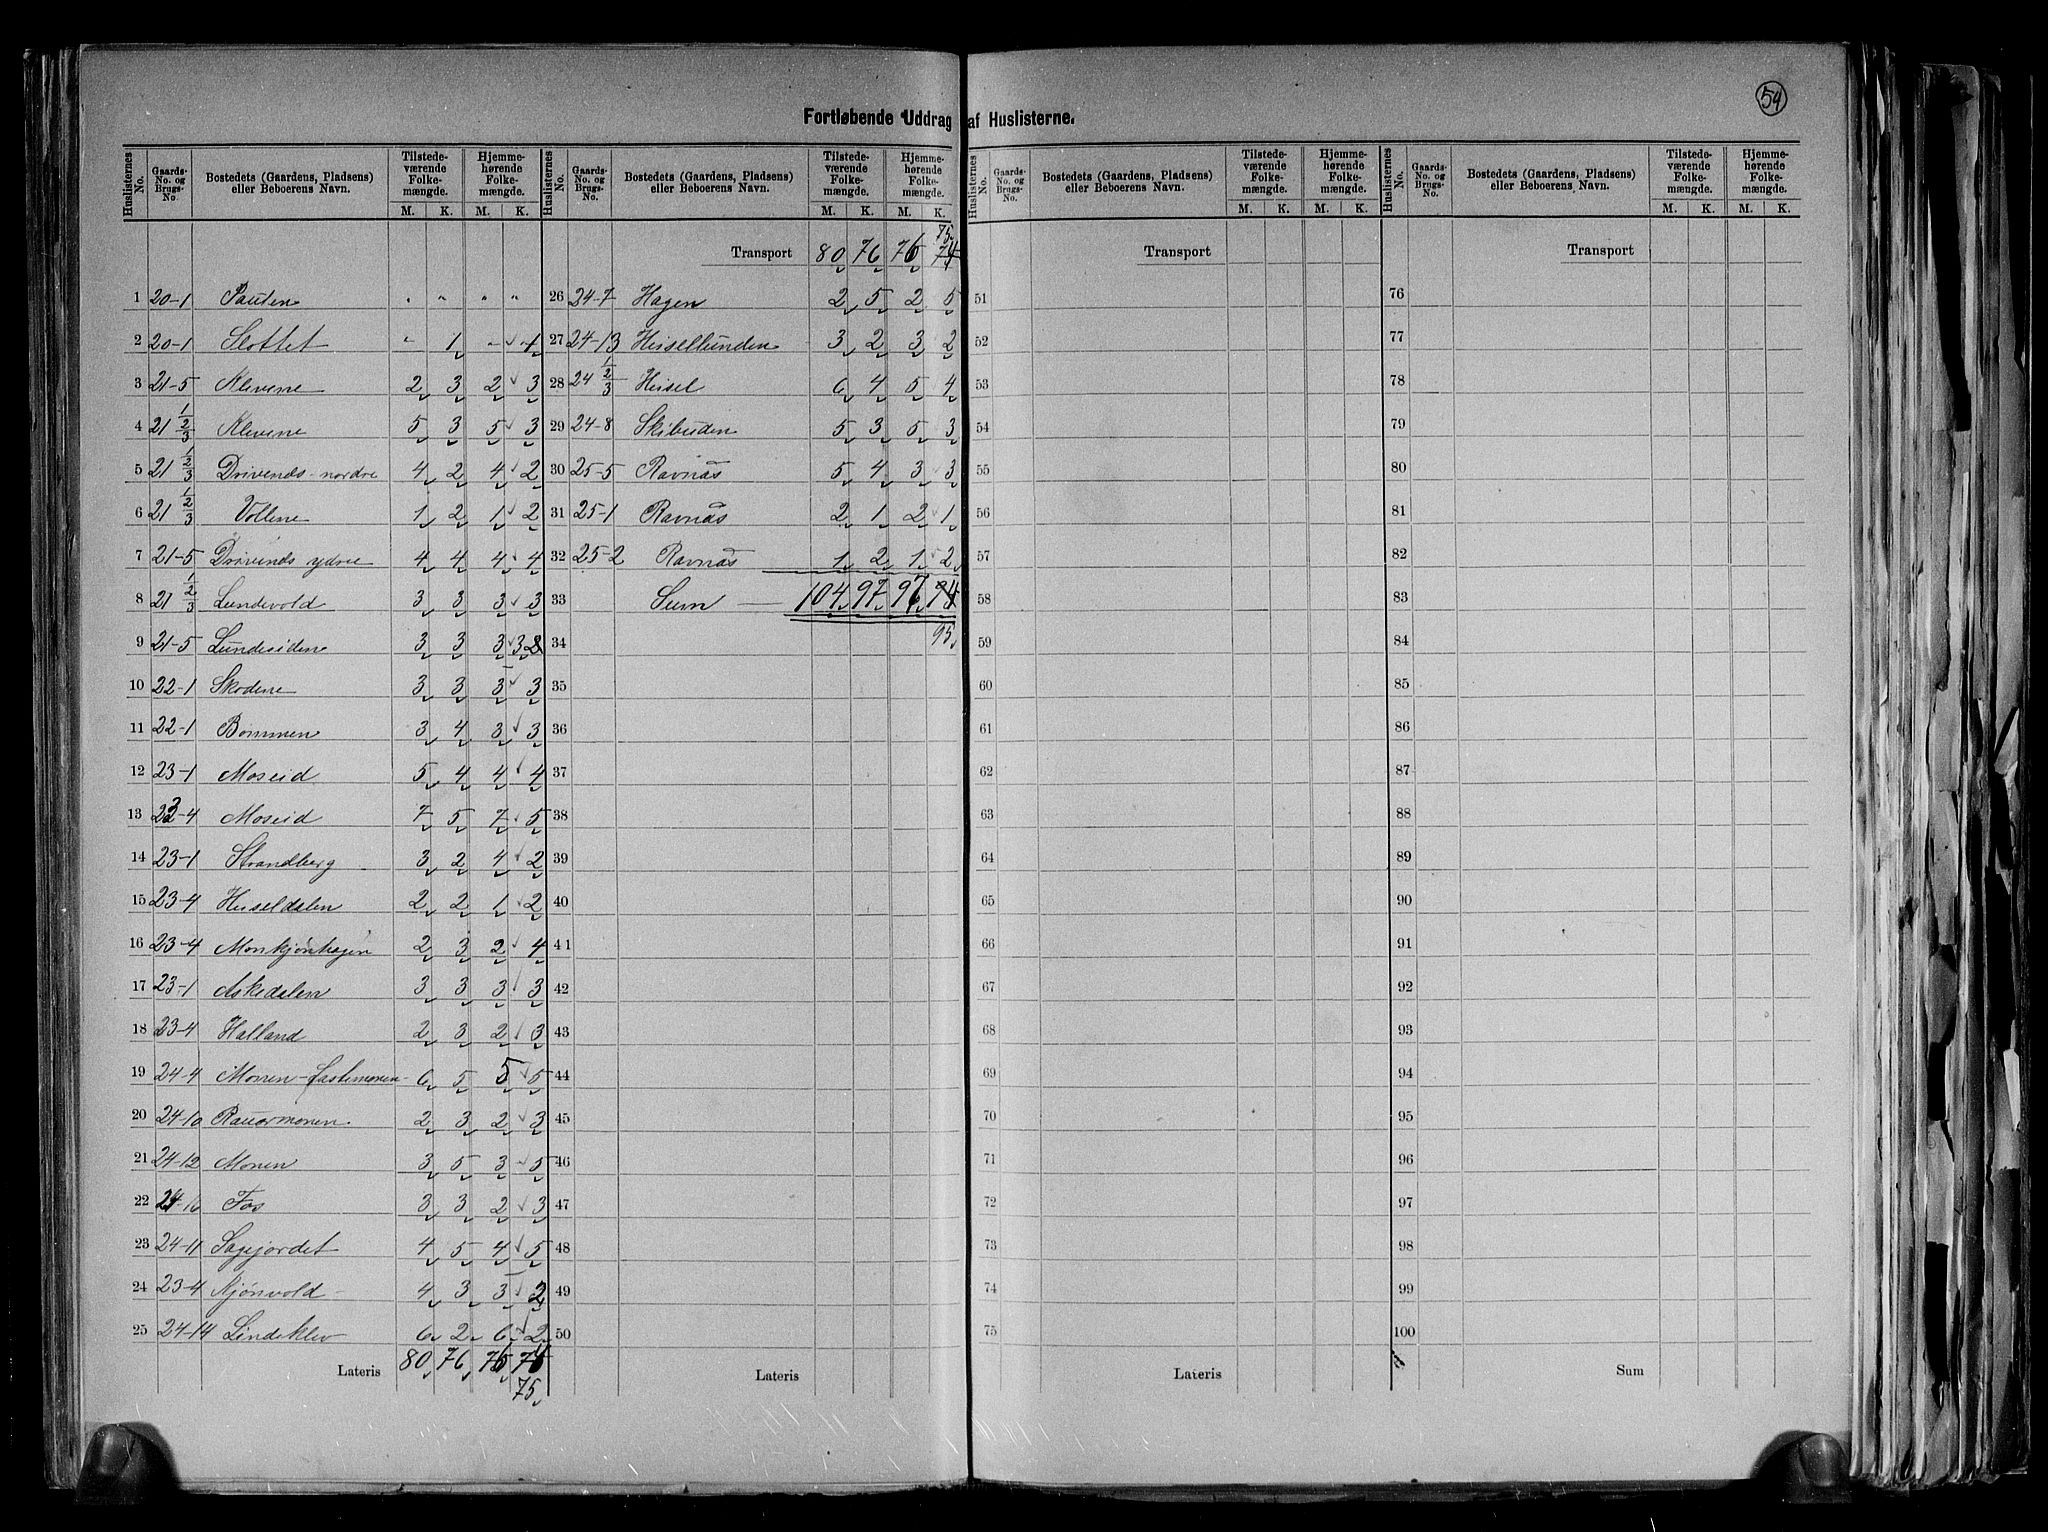 54
Fortløbende Uddrag af Huslisterne.
Huslisternes No. Gaards-No. og Brugs-No. Bostedets (Gaardens, Pladsens) eller Beboerens Navn. Tilstedeværende Folkemængde. M. K. Hjemmehørende Folkemængde. M. K.
1 20-1 Pauten " " " "
2 20-1 Slottet " 1 " 1
3 21-5 Klevene 2 3 2 3
4 21 1/2/3 Klevene 5 3 5 3
5 21 1/2/3 Drivenes-nordre 4 2 4 2
6 21 1/2/3 Vollene 1 2 1 2
7 21-5 Drivenes ydre 4 4 4 4
8 21 1/2/3 Lundevold 3 3 3 3
9 21-5 Lundesidene 3 3 3 3
10 22-1 Skodene 3 3 3 3
11 22-1 Bommen 3 4 3 3
12 23-1 Moseid 5 4 4 4
13 23-4 Moseid 7 5 7 5
14 23-1 Strandberg 3 2 4 2
15 23-4 Heiseldalen 2 2 1 2
16 23-4 Monkjønhagen 2 3 2 4
17 23-1 Askedalen 3 3 3 3
18 23-4 Halland 2 3 2 3
19 24-4 Monen-Fastemonen 6 5 5 5
20 24-10 Rauormonen 2 3 2 3
21 24-12 Monen 3 5 3 5
22 24-16 Fos 3 3 2 3
23 24-11 Sagejordet 4 5 4 5
24 23-4 Kjønvold 4 3 3 2
25 24-14 Lindeklev 6 2 6 2
Lateris 80 76 76 74
75
Huslisternes No. Gaards-No. og Brugs-No. Bostedets (Gaardens, Pladsens) eller Beboerens Navn. Tilstedeværende Folkemængde. M. K. Hjemmehørende Folkemængde. M. K.
75
Transport 80 76 76 74
26 24-7 Hagen 2 5 2 5
27 24-13 Heisellunden 3 2 3 2
28 24 1/2/3 Heisel 6 4 5 4
29 24-8 Skibuden 5 3 5 3
30 25-5 Ravnås 5 4 3 3
31 25-1 Ravnås 2 1 2 1
32 25-2 Ravnås 1 2 1 2
33 Sum 104 97 97 94
34 95
35
36
37
38
39
40
41
42
43
44
45
46
47
48
49
50
Lateris
Huslisternes No. Gaards-No. og Brugs-No. Bostedets (Gaardens, Pladsens) eller Beboerens Navn. Tilstedeværende Folkemængde. M. K. Hjemmehørende Folkemængde. M. K.
Transport
51
52
53
54
55
56
57
58
59
60
61
62
63
64
65
66
67
68
69
70
71
72
73
74
75
Lateris
Huslisternes No. Gaards-No. og Brugs-No. Bostedets (Gaardens, Pladsens) eller Beboerens Navn. Tilstedeværende Folkemængde. M. K. Hjemmehørende Folkemængde. M. K.
Transport
76
77
78
79
80
81
82
83
84
85
86
87
88
89
90
91
92
93
94
95
96
97
98
99
100
Sum